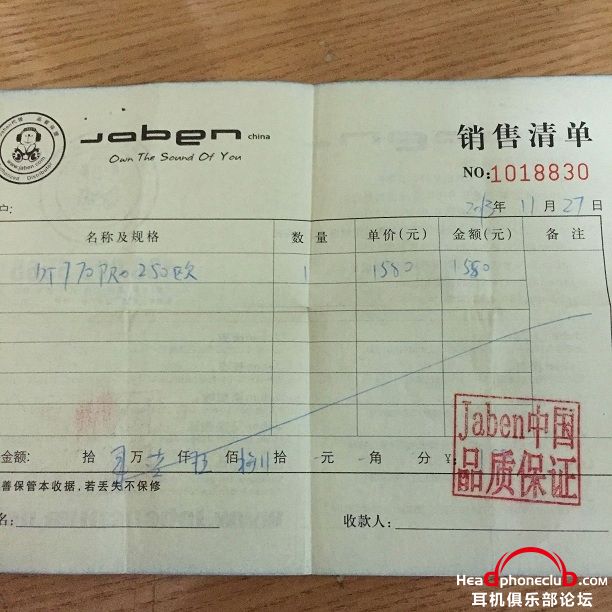 Jaben china
Own The Sound Of You
www.jaben.com
销售清单
NO:1018830
户: 2013年 11月 27日
名称及规格 数量 单价(元) 金额(元) 备注
DT770PRO 250欧 1 1580 1580
Jaben中国
品质保证
金额: 拾 万 壹仟 伍佰 捌拾 元 角 分 ¥:
善保管本收据,若丢失不保修
名: 收款人:
HeadphoneclubD.com
耳机俱乐部论坛